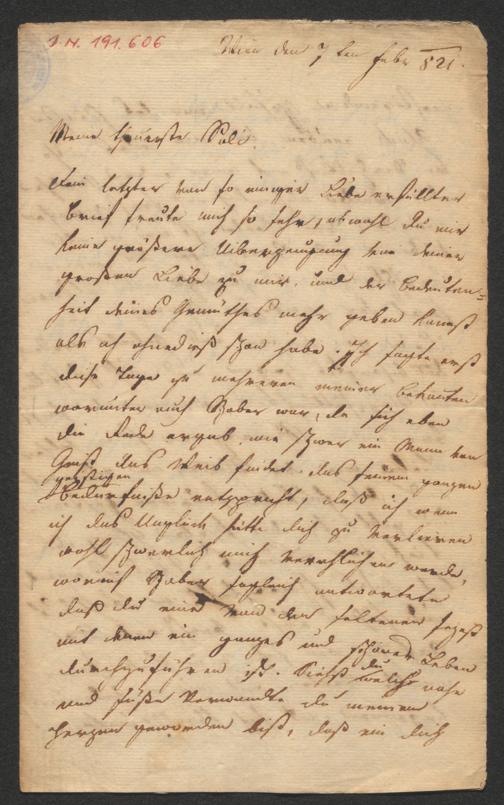 I. N. 191.606
Wien den 7ten Febr 821.
Meine theuerste Poldi.
Dein letzter von so inniger Liebe erfüllter
Brief freute mich so sehr, obwohl du mir
keine größere Überzeugung von deiner
großen Liebe zu mir, und der
deines Gemüthes mehr geben kannst
als ich ohnedieß schon habe. Ich sagte erst
diese Tage zu mehreren meiner Bekannten
worunter auch Schober war, da sich eben
die Rede ergab, wie schwer ein Mann von
Geist das Weib findet das seinem ganzen
geistigen
Bedürfniße entspricht, daß ich wenn
ich das Unglück hätte dich zu verlieren
wohl schwerlich mich verehlichen werde,
worauf Schober sogleich antwortete
daß du eine von den seltenen seyst
mit denen ein ganzes und schönes Leben
durchzuführen ist. Siehst du welche nahe
und süße Verwandte du meinem
Herzen geworden bist, daß ein dich